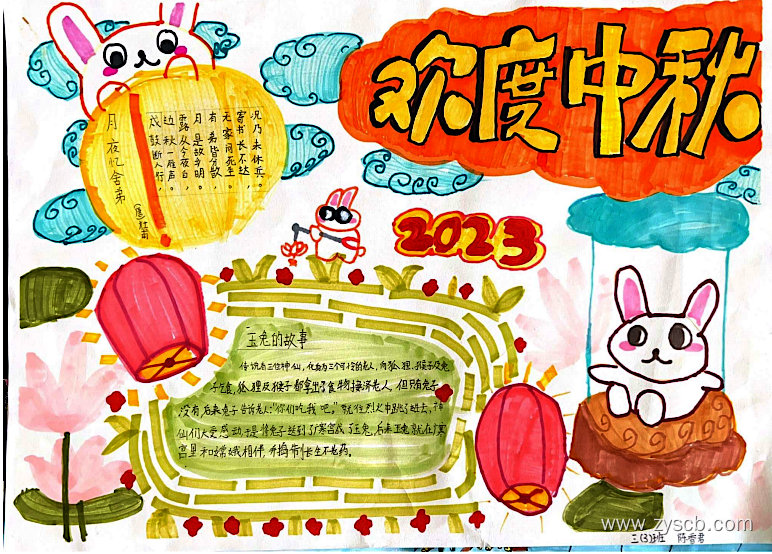 欢度中秋
月夜忆舍弟
(唐)杜甫
戍鼓断人行,
边秋一雁声。
露从今夜白,
月是故乡明。
有弟皆分散,
无家问死生。
寄书长不达,
况乃未休兵。
2023
玉兔的故事
传说有三位神仙,化身为三个可怜的老人,向狐狸、猴子及兔
子乞食,狐狸及猴子都拿出了食物接济老人,但只有兔子
没有,后来兔子告诉老人:"你们吃我吧,"就往烈火中跳了进去,神
仙们大受感动,于是将兔子送到了广寒宫成了玉兔,后来玉兔就在广寒
宫里和嫦娥相伴,并捣制长生不老药。
www.zyscb.com
三(3)班 陈香君